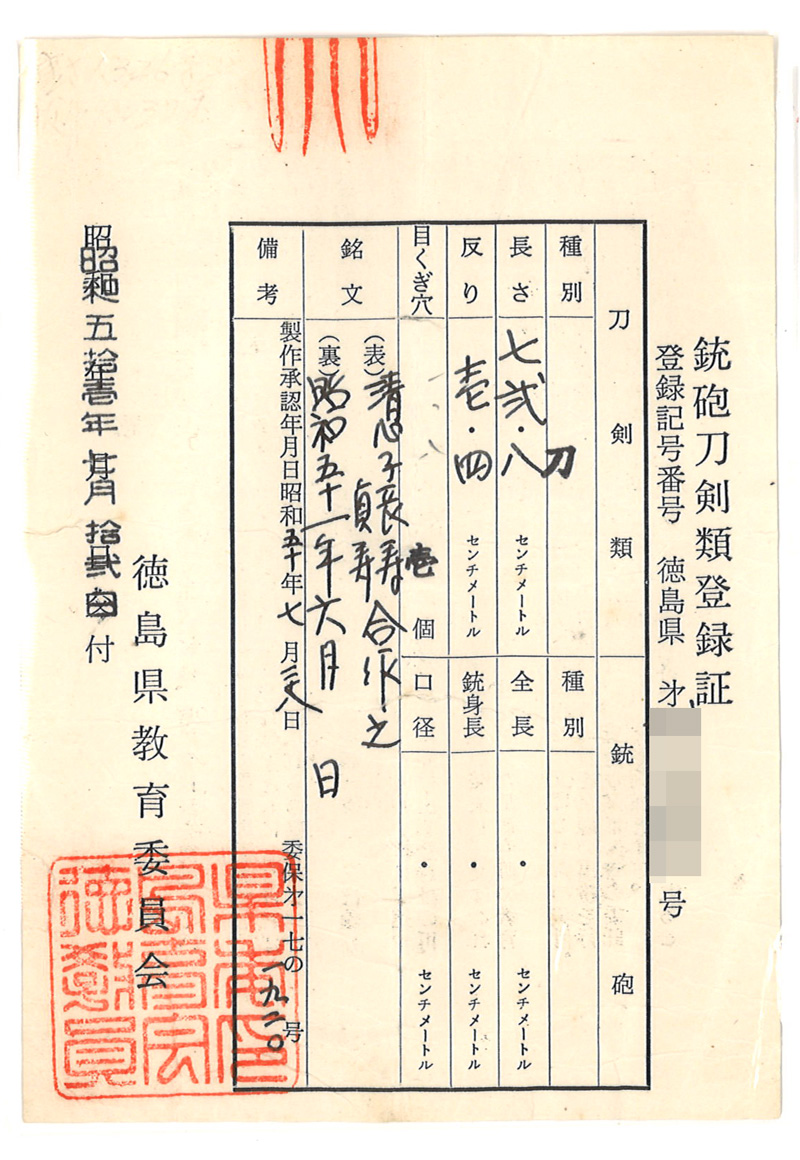 銃砲刀剣類登録証
登録記号番号 徳島県 才 号
刀剣類 銃砲
種別 刀 種別
長さ 七弐・八 センチメートル 全長 ・ センチメートル
反り 壱・四 センチメートル 銃身長 ・ センチメートル
目くぎ穴 壱個 口径 ・ センチメートル
銘文 (表) 清心子長寿 貞寿 合作之
(裏) 昭和五十一年六月 日
備考 製作承認年月日昭和五十年七月 日 委保才一七の一九二〇号
徳島県教育委員会
昭和五拾壱年 月拾弐日付